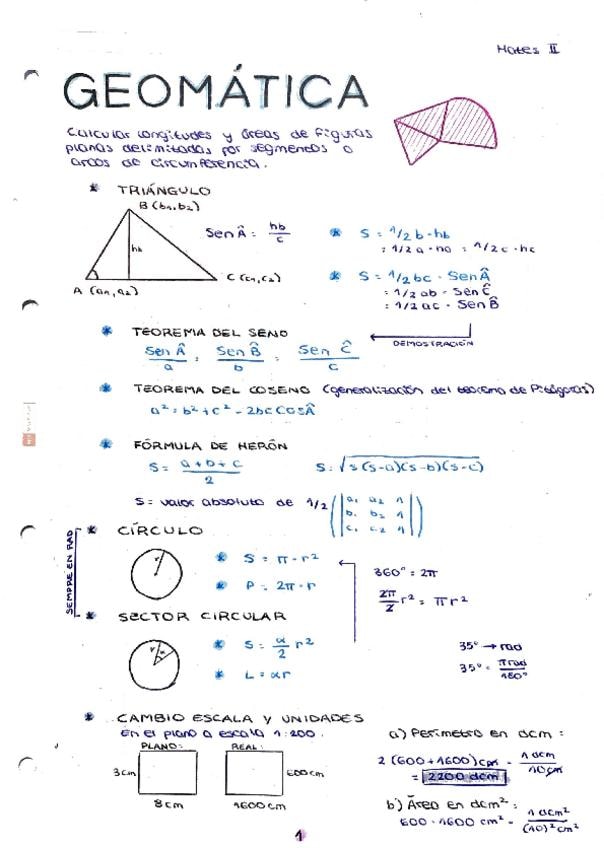 Mates II
GEOMÁTICA
Calcular longitudes y áreas de figuras
planas delimitadas por segmentos o
arcos de circunferencia.
* TRIÁNGULO
B (b₁,b₂)
hb
A (a₁,a₂)
C (c₁,c₂)
Sen Â = hb/c
* S = 1/2 b · hb
= 1/2 a · ha = 1/2 c · hc
* S = 1/2 bc · Sen Â
= 1/2 ab · Sen Ĉ
= 1/2 ac · Sen B̂
* TEOREMA DEL SENO
DEMOSTRACIÓN
Sen Â/a = Sen B̂/b = Sen Ĉ/c
* TEOREMA DEL COSENO (generalización del teorema de Pitágoras)
a² = b² + c² - 2bc Cos Â
* FÓRMULA DE HERÓN
S = a+b+c/2
S = √s(s-a)(s-b)(s-c)
S = valor absoluto de 1/2 (| a₁ a₂ 1 |)
b₁ b₂ 1
c₁ c₂ 1
SEMPRE EN RAD
* CÍRCULO
r
* S = π · r²
* P = 2π · r
360° = 2π
2π/2 r² = πr²
* SECTOR CIRCULAR
r α
* S = α/2 r²
* L = αr
35° → rad
35° · πrad/180°
* CAMBIO ESCALA Y UNIDADES
En el plano a escala 1:200.
PLANO:
REAL:
3cm
8cm
600cm
1600cm
a) Perímetro en dcm :
2 (600+1600)cm · 1 dcm/10cm
= 2200 dcm
b) Área en dcm² :
600 · 1600 cm² · 1 dcm²/(10)² cm²
1